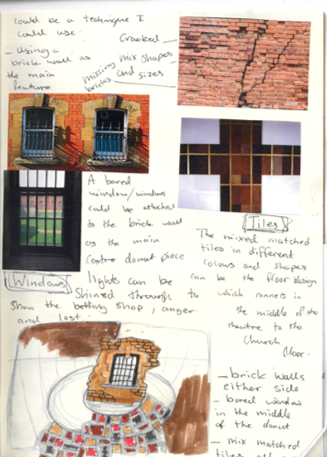 could be a technique I
could use.
Cracked
- Using a
brick wall as
the main
feature
missing
bricks
mix shapes
and sizes
A bared
window/windows
could be attached
to the brick wall
as the main
centre donut piece
Tiles
The mixed matched
tiles in different
colours and shapes
can be the floor design
which runs in
the middle of the
theatre to the
Church
floor.
Windows
lights can be
shined through to
Show the betting shop, anger
and lost.
- brick walls
either side
- bared window
in the middle
of the donut
- mix matched
tiles all